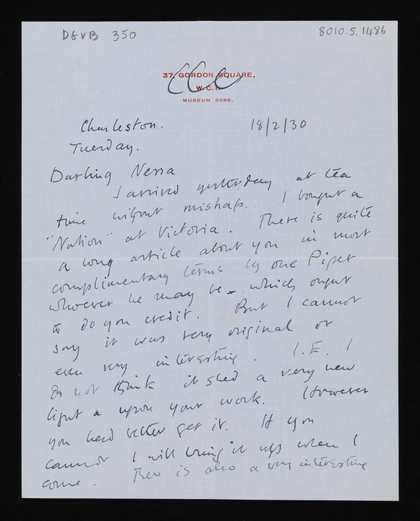 D&VB 350
8010.5.1486
37 GORDON SQUARE,
W.C.1.
MUSEUM
Charleston.
18/2/30
Tuesday.
Darling Nessa
I arrived yesterday at tea
time without mishap. I bought a
"Nation" at Victoria. There is quite
a long article about you in most
complimentary terms by one Piper
whoever he may be – which ought
to do you credit. But I cannot
say it was very original or
even very interesting. I.E. I
do not think it shed a very new
light upon your work. However
you had better get it. If you
cannot I will bring it up when I
come. There is also a very interesting